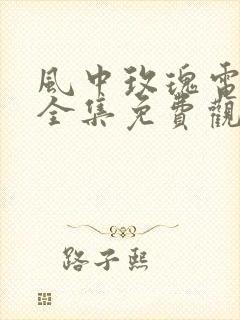 風中玫瑰電
全集免費觀
路子熙